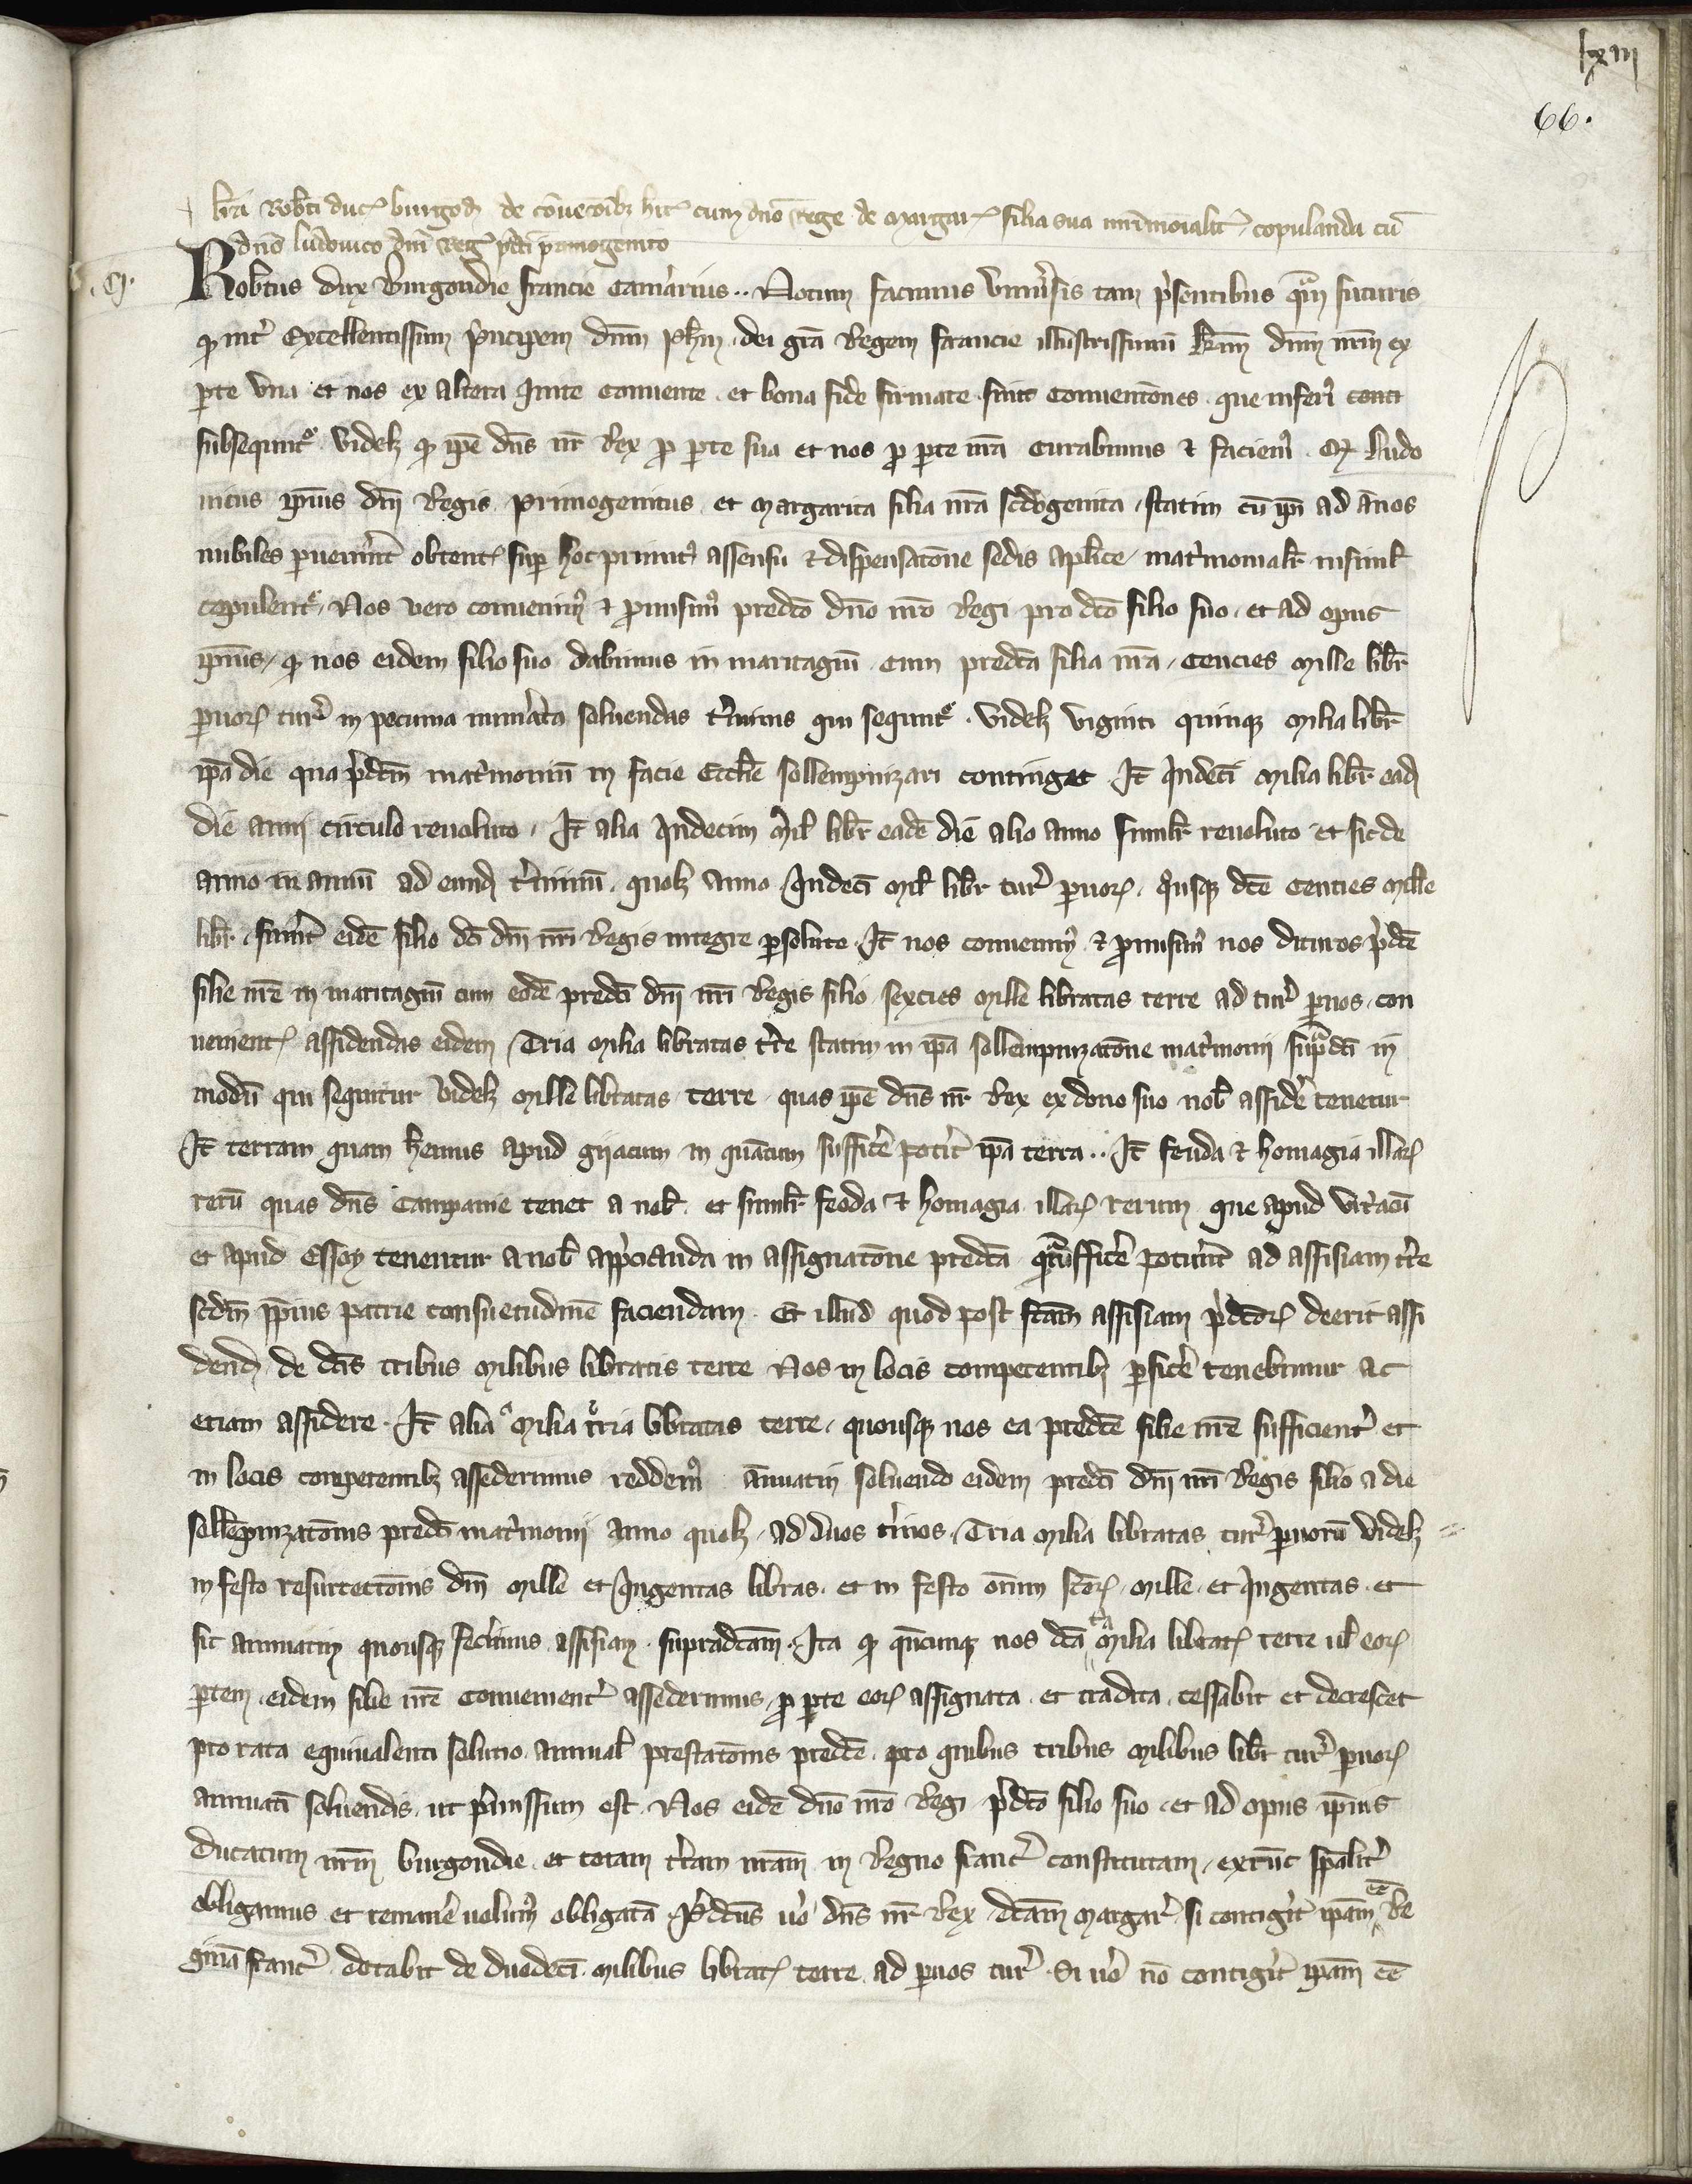 lxiii
66.
lrā Robti duc burgod de cōuecōibȝ hit cum dno Rege de Margar filia sua mrimoialit copulanda cū
dno ludouico dni Reg pdci primogenito
Robtus dux Burgondie francie Camarius .. Notum facimus vniusis tam psentibus qam futuris
qp int Excellentissimum pncipem dnm Phm dei gra Regem francie illustrissimū kmm dnm nrm ex
pte vna et nos ex altera Inite conuente et bona fide firmate sunt conuentōnes que inferi conti
subsequntr videlȝ qp ipe dns nr Rex pro pte sua et nos pro pte nra curabimus et faciem. qp Ludo
uicus ipius dni Regis primogenitus et Margarita filia nra scdogenita statim cū ipi ad ānos
nubiles puenint obtent sup hoc primit assensu et dispensatōne sedis aplice matmonialr insiml
copulentr Nos vero conuenim et promisim predco dno nro Regi pro dco filio suo et ad opus
ipius qp nos eidem filio suo dabimus in maritagiū cum predca filia nra Cencies Mille libr
puor tur in pecunia numata soluendas tminis qui sequntr videlȝ viginti quinqȝ Milia libr
ipa die qua pdcm matmoniū in facie Ecclie sollempnizari continget It Qndeci Milia libr ead
die anni circulo reuoluto It alia Qndecim Mil libr eadē die alio anno simlr reuoluto et sic de
anno in annū ad eund tminū quolȝ anno Qndeci mil libr tur puor qusqȝ dce Centies mille
libr fuint eidē filio dci dni nri Regis integre psolute It nos conuenim et promisim nos daturos pdce
filie nre in maritagiū cum eodē predci dni nri Regis filio sexcies Mille libratas terre ad tur puos con
uenient assidendas eidem Tria Milia libratas tre statim in ipa sollempnizatōne matmonii supadci in
modū qui sequitur videlȝ Mille libratas terre quas ipe dns nr Rex ex dono suo nob assidē tenetur
It terram quam hemus apud gyacum in quātum sufficē potit ipa terra .. It feuda et homagia illar
rerū quas dns Campanie tenet a nob et simlr feoda et homagia illar rerum que apud vitraci
et apud Essoy tenentur a nob appcianda in assignatōne predca qatu sufficē potuint ad assisiam tre
scdm ipius patrie consuetudinē faciendam Et illud quod post fcam assisiam pdcor deerit assi
dend de dcis tribus Milibus libratis terre Nos in locis competentibȝ pficē tenebimur ac
etiam assidere It alia Milia tria libratas terre quousqȝ nos ea predce filie nre sufficient et
in locis competentibȝ assederimus reddem ānuatim soluendo eidem predci dni nri Regis filio a die
sollēpnizatōnis predci matmonii anno quolȝ ad duos tminos Tria Milia libratas tur puorū videlȝ
in festo resurrectōnis dni Mille et Qngentas libras et in festo oīum scor Mille et Qngentas et
sic annuatim quousqȝ fecimus assisiam supradcam Ita qp qncunqȝ nos dca tria Milia librat terre ul eor
ptem eidem filie nre conuenient assederimus pro pte eor assignata et tradita cessabit et decrescet
pro rata equiualenti solutio annual prestatōnis predce pro quibus tribus Milibus libr tur puor
annuati soluendis ut pmissum est Nos eidē dno nro Regi pdco filio suo et ad opus ipius
ducatum nrm burgondie et totam tram nram in Regno francr constitutam extūc spalit
obligamus et remanē uolum obligatā Pdcus uo dns nr Rex dcam Margar si contigit ipam ee Re
ginā francr dotabit de duodeci milibus librat terre ad puos tur Si uo nō contigit ipam ēē